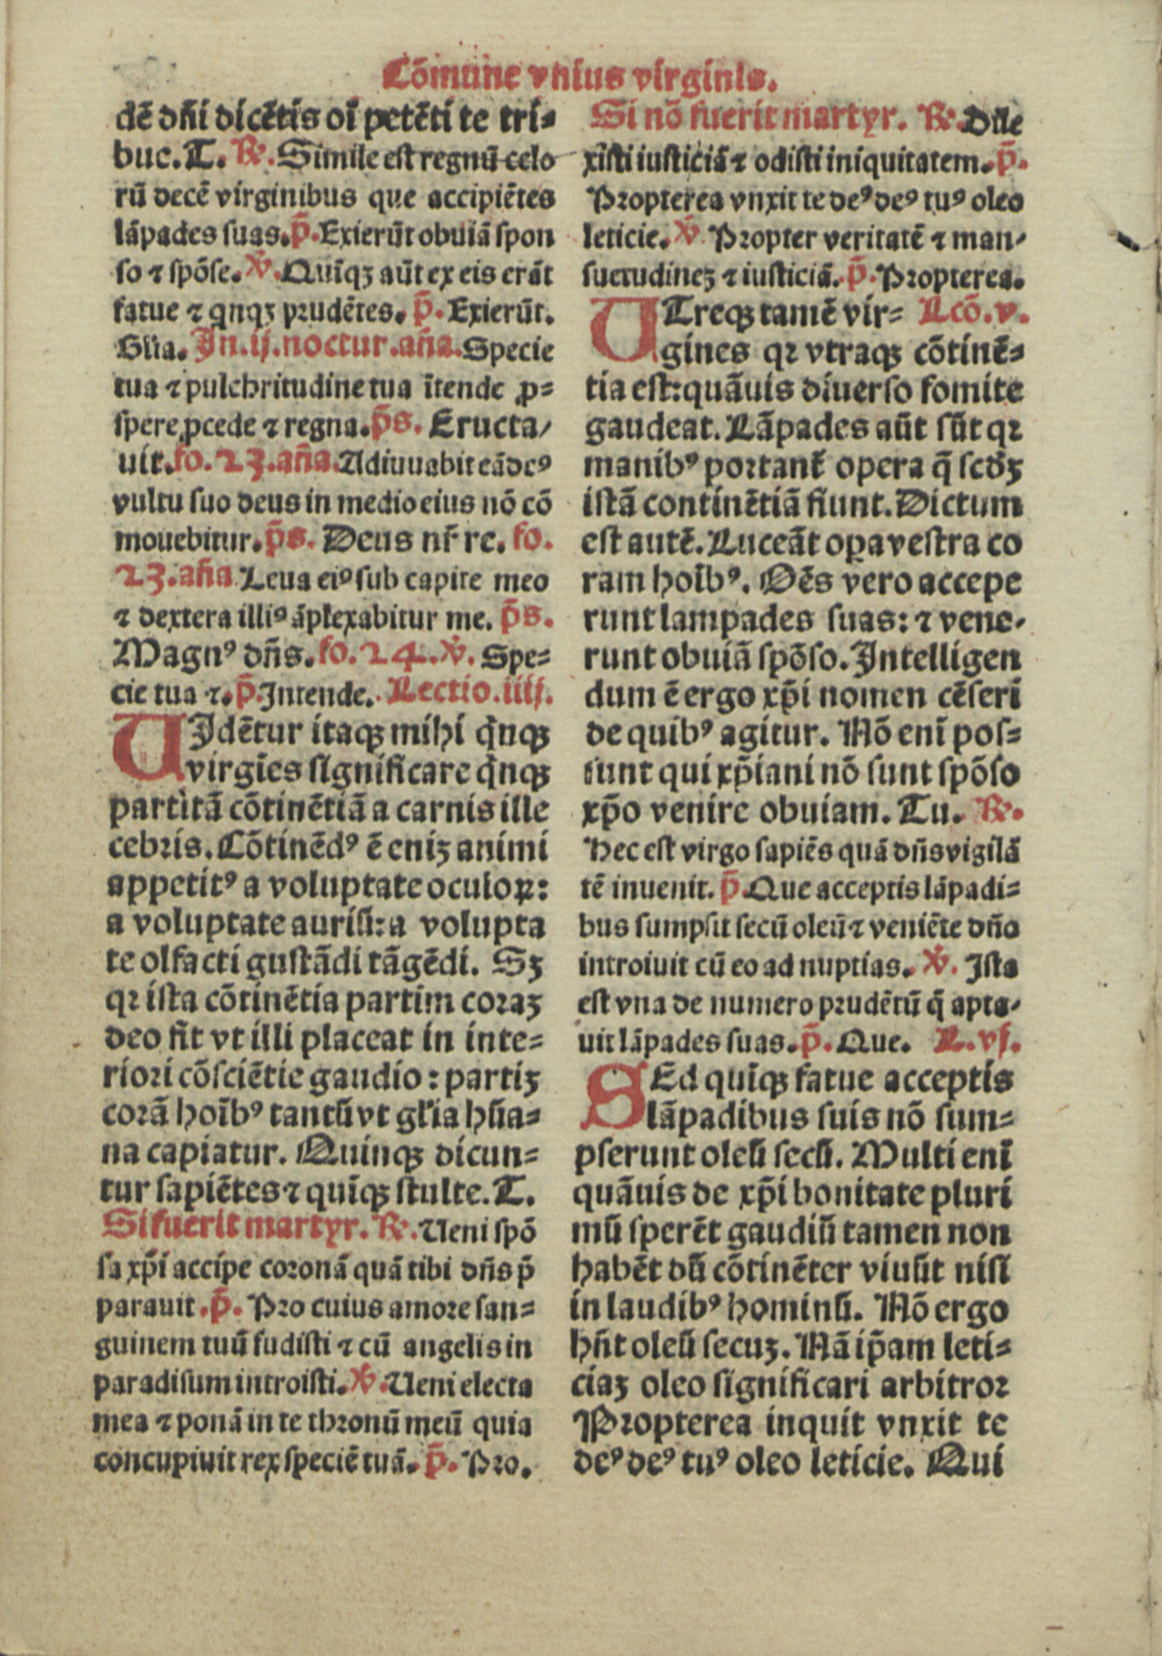 Cõmune vnius virginis.
dẽ dñi dicẽtis oĩ petẽti te tri⸗
bue. T. ℟. Simile est regnũ celo
rũ decẽ virginibus que accipiẽtes
lãpades suas. p̃. Exierũt obuiã spon
so ⁊ spõse. ℣. Quĩqꝫ aũt ex eis erãt
fatue ⁊ qnqꝫ prudẽtes. p̃. Exierũt.
Glia. In .ij. noctur. aña. Specie
tua ⁊ pulchritudine tua ĩtende ꝓ⸗
spere ꝓcede ⁊ regna. p̃s. Eructa/
uit. fo. 23. aña. Adiuuabit eã deꝰ
vultu suo deus in medio eius nõ cõ
mouebitur. p̃s. Deus nr̃ re. fo.
23. aña Leua eiꝰ sub capite meo
⁊ dextera illiꝰ ãplexabitur me. p̃s.
Magnꝰ dñs. fo. 24. ℣. Spe⸗
cie tua ⁊. p̃. Intende. Lectio .iiij.
UIdẽtur itaqꝫ mihi q̃nqꝫ
virgĩes significare q̃nqꝫ
partitã cõtinẽtiã a carnis ille
cebris. Cõtinẽdꝰ ẽ eniꝫ animi
appetitꝰ a voluptate oculoꝝ:
a voluptate auriũ: a volupta
te olfacti gustãdi tãgẽdi. Sꝫ
qꝛ ista cõtinẽtia partim coraꝫ
deo fit vt illi placeat in inte⸗
riori cõsciẽtie gaudio: partiꝫ
corã hoĩbꝰ tantũ vt gl̃ia hũa⸗
na capiatur. Quinqꝫ dicun⸗
tur sapiẽtes ⁊ quĩqꝫ stulte. T.
Si fuerit martyr. ℟. Ueni spõ
sa xp̃i accipe coronã quã tibi dñs p̃
parauit. p̃. Pro cuius amore san⸗
guinem tuũ fudisti ⁊ cũ angelis in
paradisum introisti. ℣. Ueni electa
mea ⁊ ponã in te thronũ meũ quia
concupiuit rex speciẽ tuã. p̃. Pro.
Si nõ fuerit martyr. ℟. Dile
xisti iusticiã ⁊ odisti iniquitatem. p̃.
Propterea vnxit te deꝰ deꝰ tuꝰ oleo
leticie. ℣. Propter veritatẽ ⁊ man/
suetudineꝫ ⁊ iusticiã. p̃. Propterea.
UTreqꝫ tamẽ vir⸗ Lcõ. v.
gines qꝛ vtraqꝫ cõtinẽ⸗
tia est: quãuis diuerso fomite
gaudeat. Lãpades aũt sũt qꝛ
manibꝰ portant̃ opera q̃ scd̃ꝫ
istã continẽtiã fiunt. Dictum
est autẽ. Luceãt oꝑa vestra co
ram hoĩbꝰ. Oẽs vero accepe
runt lampades suas: ⁊ vene/
runt obuiã spõso. Intelligen
dum ẽ ergo xp̃i nomen cẽseri
de quibꝰ agitur. Nõ enĩ pos⸗
sunt qui xp̃iani nõ sunt spõso
xp̃o venire obuiam. Tu. ℟.
Hec est virgo sapiẽs quã dñs vigilã
tẽ inuenit. p̃. Que acceptis lãpadi⸗
bus sumpsit secũ oleũ ⁊ veniẽte dño
introiuit cũ eo ad nuptias. ℣. Ista
est vna de numero prudẽtũ q̃ apta/
uit lãpades suas. p̃. Que. L. vj.
SEd quĩqꝫ fatue acceptis
lãpadibus suis nõ sum⸗
pserunt oleũ secũ. Multi enĩ
quãuis de xp̃i bonitate pluri
mũ sperẽt gaudiũ tamen non
habẽt dũ cõtinẽter viuũt nisĩ
in laudibꝰ hominũ. Nõ ergo
hñt oleũ secuꝫ. Nã ip̃am leti⸗
ciaꝫ oleo significari arbitror
Propterea inquit vnxit te
deꝰ deꝰ tuꝰ oleo leticie. Qui